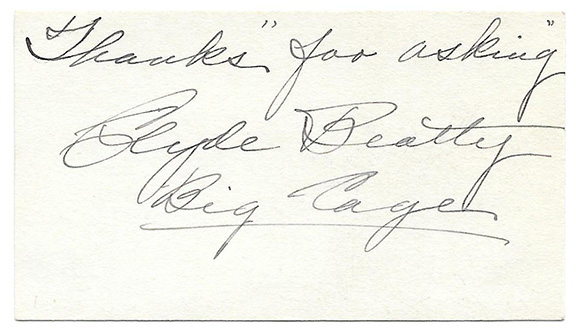 "Thanks" for asking"
Clyde Beatty
Big Cage